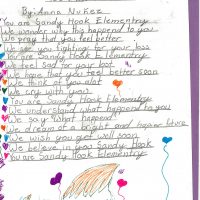 By: Anna
You are Sandy Hook Elementry
We wonder why this happend to you
We pray that you feel better
We see you fighting for your loss
You are Sandy Hook Elementry
We feel sad for your
We hope that you feel better soon
We think of you alot
We cry with you
You are Sandy Hook Elementry
We understand what happend to you
We say "what happend"
We dream of a bright and future
We wish you get well soon
We believe in you Sandy Hook
You are Sandy Hook Elementry